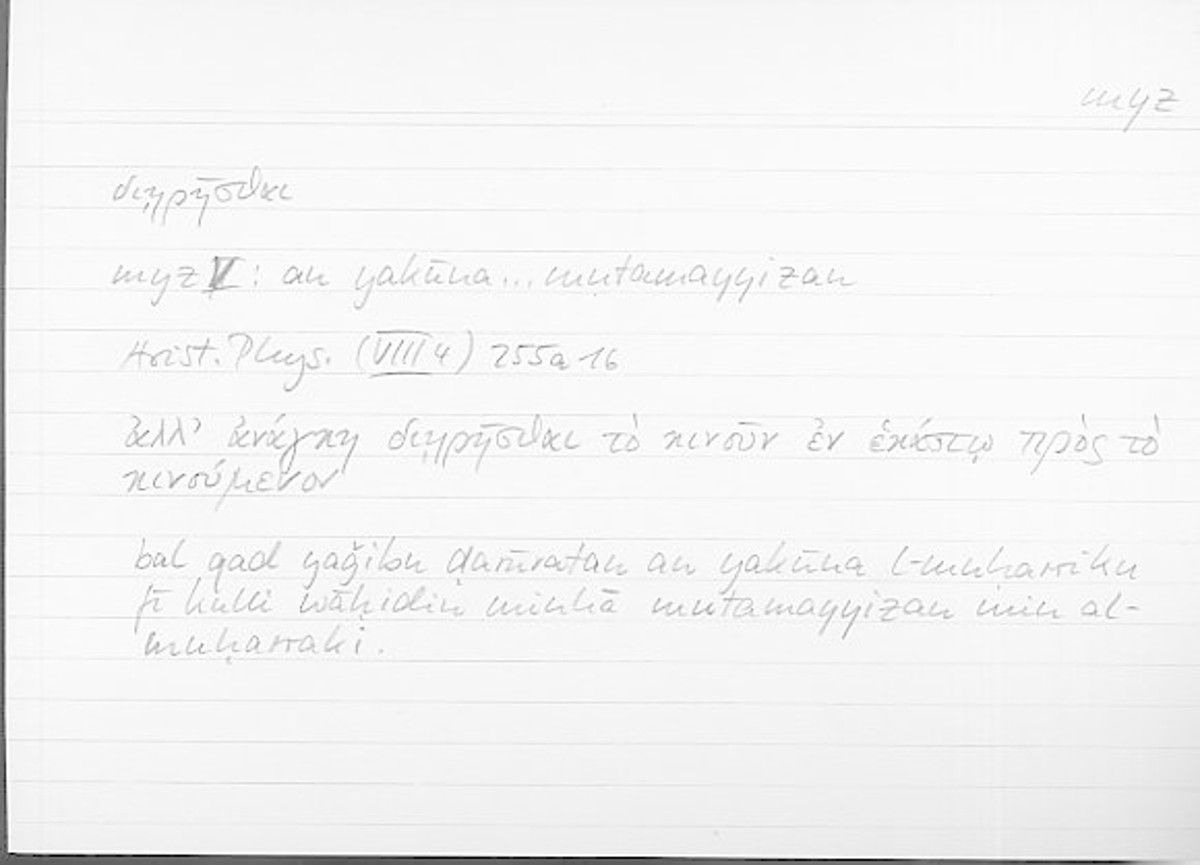 myz
διῃρῆσθαι
myz V : an yakūna... mutamayyizan
Arist. Phys. (VIII 4) 255a 16
ἀλλ' ἀνάγκη διῃρῆσθαι τὸ κινοῦν ἐν ἑκάστῳ πρὸς τὸ
κινούμενον
bal qad yaǧibu ḍarūratan an yakūna l-muḥarriku
fī kulli wāḥidin minhā mutamayyizan min al-
muḥarraki.